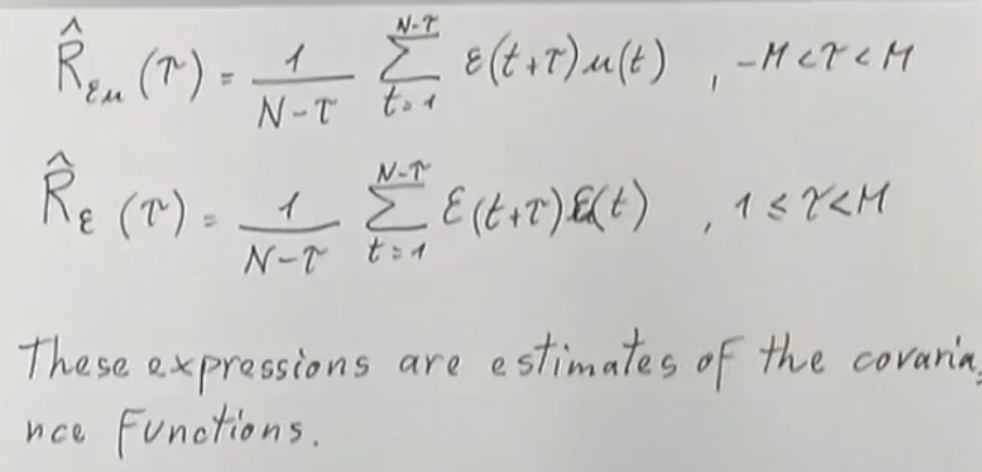 R̂_{εu}(τ) = 1/(N-τ) ∑_{t=1}^{N-τ} ε(t+τ)u(t) , -M<τ<M
R̂_ε(τ) = 1/(N-τ) ∑_{t=1}^{N-τ} ε(t+τ)ε(t) , 1≤τ<M
These expressions are estimates of the covaria-
nce functions.